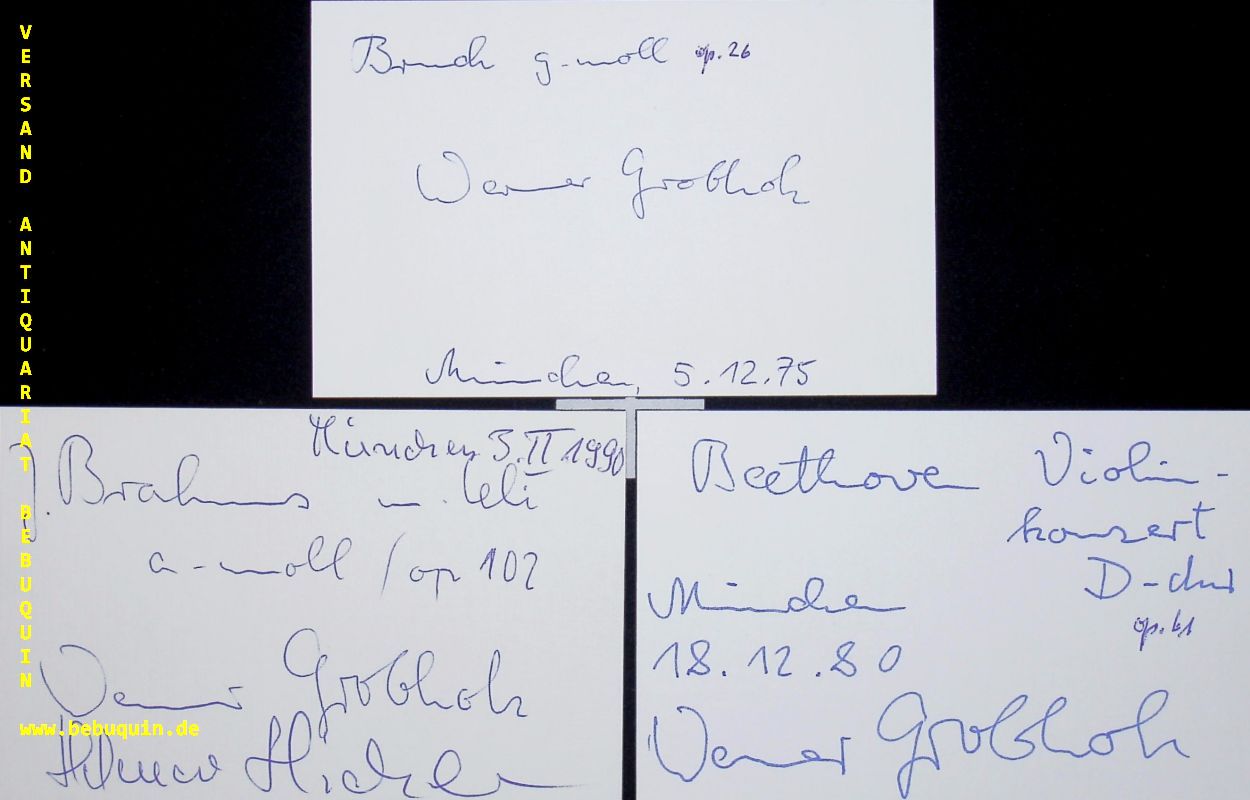 VERSAND ANTIQUARIAT BEBUQUIN
www.bebuquin.de
Bruch g-moll op. 26
Werner Grobholz
München, 5.12.75
München 3.II 1990
J. Brahms m. Celi
a-moll / op 102
Werner Grobholz
Helmar
Beethoven Violin-
konzert
D-dur
op. 61
München
18.12.80
Werner Grobholz